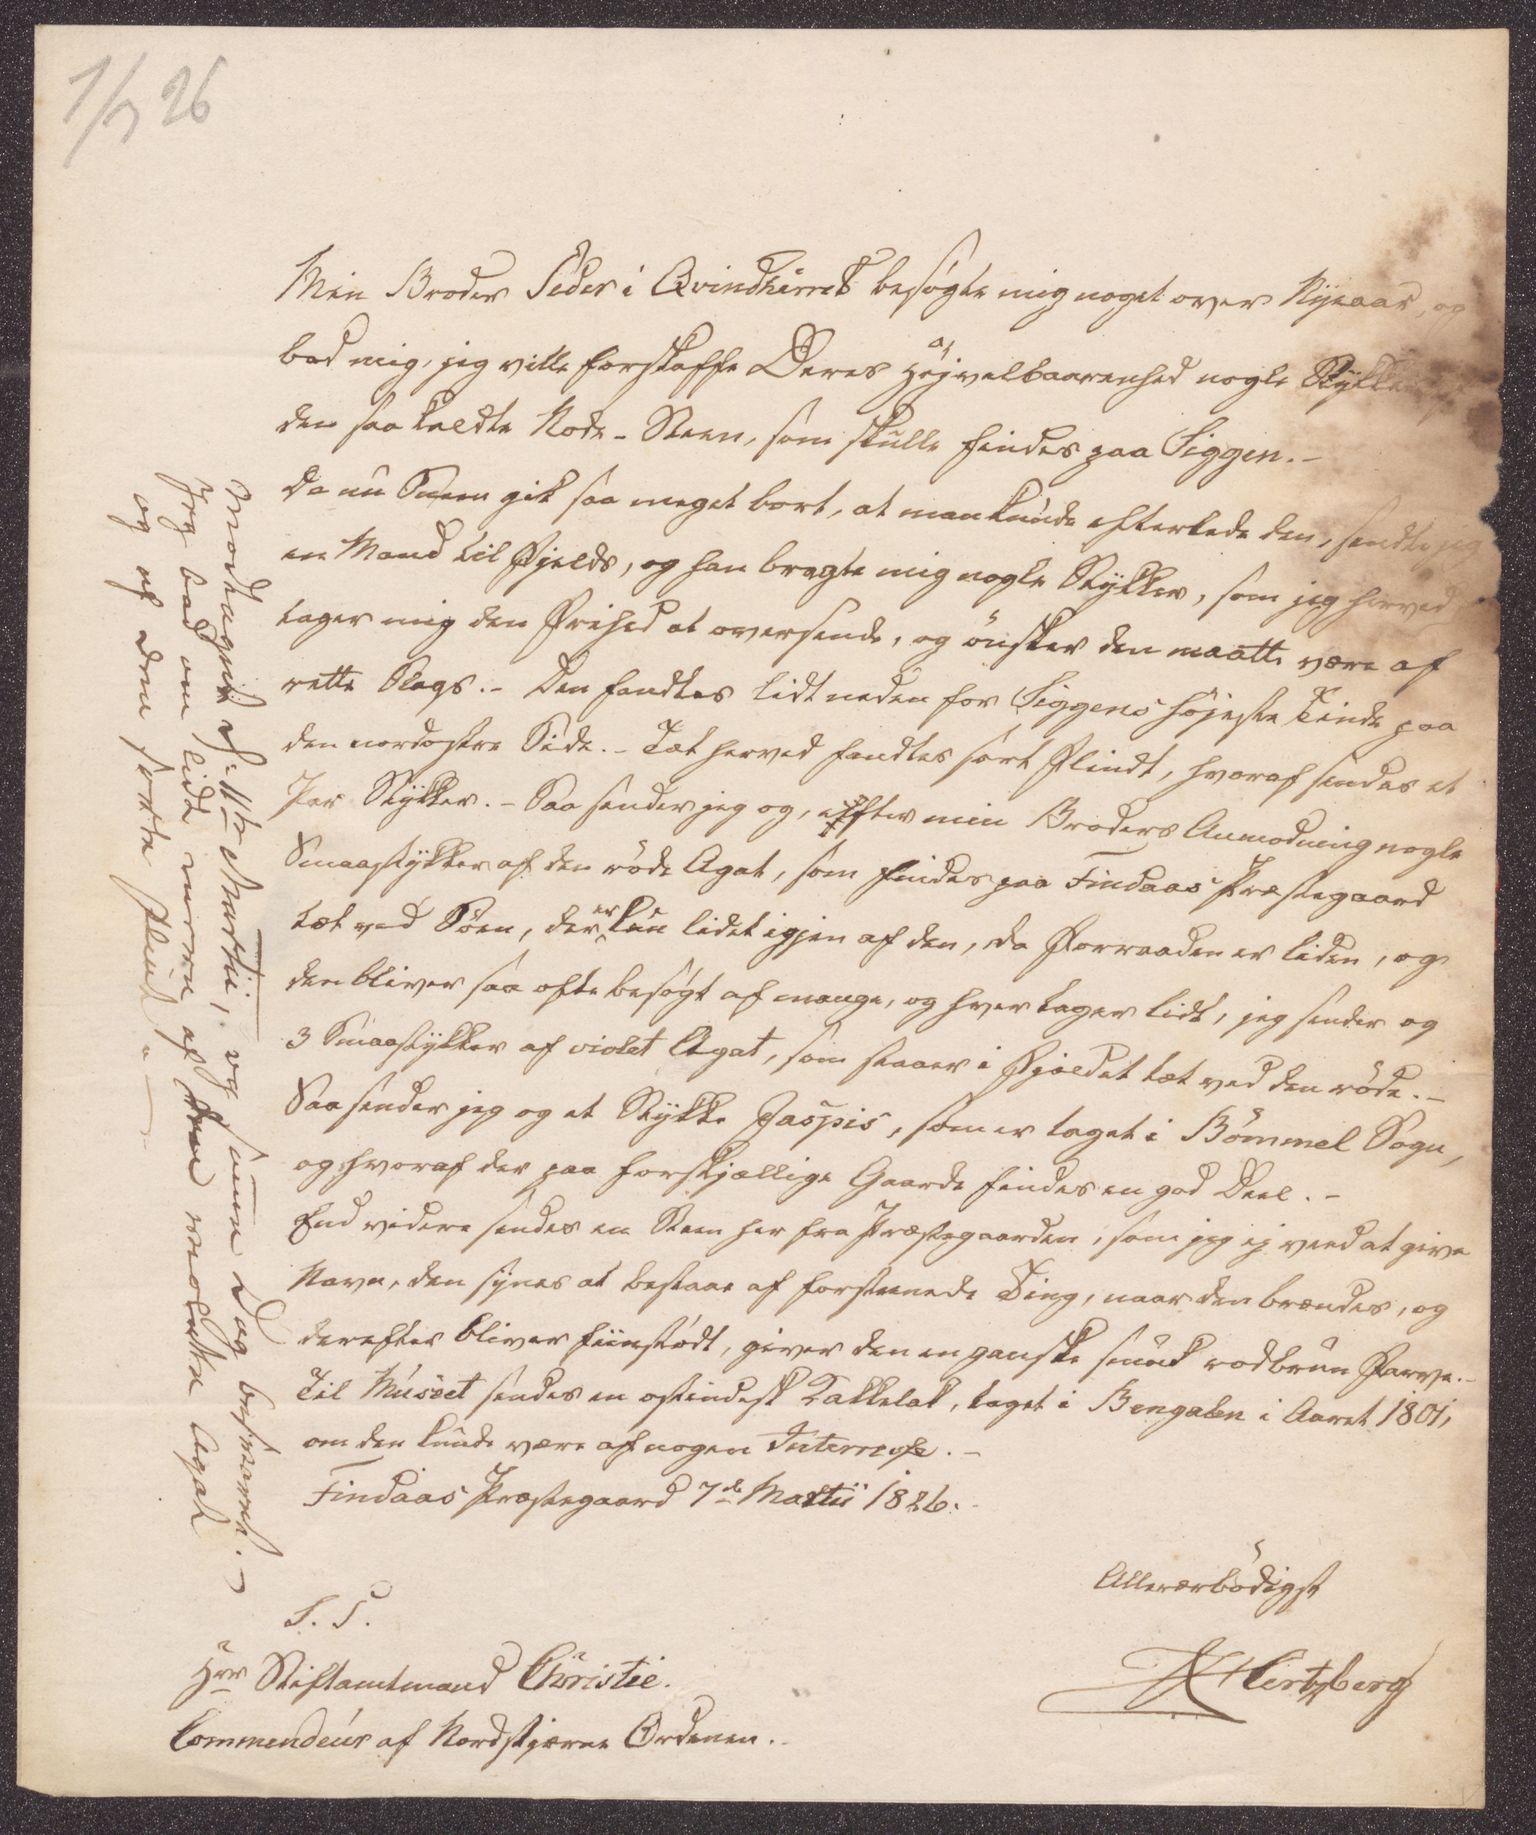 7/3 26
Min Broder Peder i Qvindherret besögte mig noget over Nÿeaar, og
bad mig, jeg ville forskaffe Deres Höjvelbaarenhed nogle Stÿkker af
den saa kaldte Node-Steen, som skulle findes paa Siggen.-
Da nu Sneen gik saa meget bort, at man kunde efterlede den, sendte jeg
en Mand til Fjelds, og han bragte mig nogle Stÿkker, som jeg herved
tager mig den Frihed at oversende, og önsker den maatte være af
rette Slags.- Den fandtes lidt neden for Siggens höjeste Tinde paa
den nordostre Side.- Tæt herved fandtes sort Flindt, hvoraf sendes et
Par Stÿkker.- Saa sender jeg og, efter min Broders Anmodning nogle
Smaastÿkker af den röde Agat, som findes paa Findaas Præstegaard
tæt ved Söen, der er kun lidet igjen af den, da Forraaden er liden, og
den bliver saa ofte besögt af mange, og hver tager lidt, jeg sender og
3 Smaastÿkker af violet Agat, som staaer i Fjeldet tæt ved den röde.-
Saa sender jeg og et Stÿkke Jaspis, som er taget i Bömmel Sogn,
og hvoraf der paa forskjællige Gaarde findes en god Deel.-
End videre sendes en Steen her fra Præstegaarden, som jeg ej veed at give
Navn, den sÿnes at bestaae af forsteenede Ting, naar den brændes, og
derefter bliver fiinstödt, giver den en ganske smuk rodbrun Farve.-
Til Museet sendes en ostindisk Kakkelak, taget i Bengalen i Aaret 1801,
om den kunde være af nogen Interresse.-
Findaas Præstegaard 7de Martii 1826.
Allerærbödigst
Hertzberg
S. T.
Hrr Stiftamtmand Christie.
Commendeur af Nordstjerne Ordenen.
Modtaget d. 11te Martii, og samme Dag besvaret.
Jeg bad om lidt mere af den violette Agat
og af den sorte Flint.